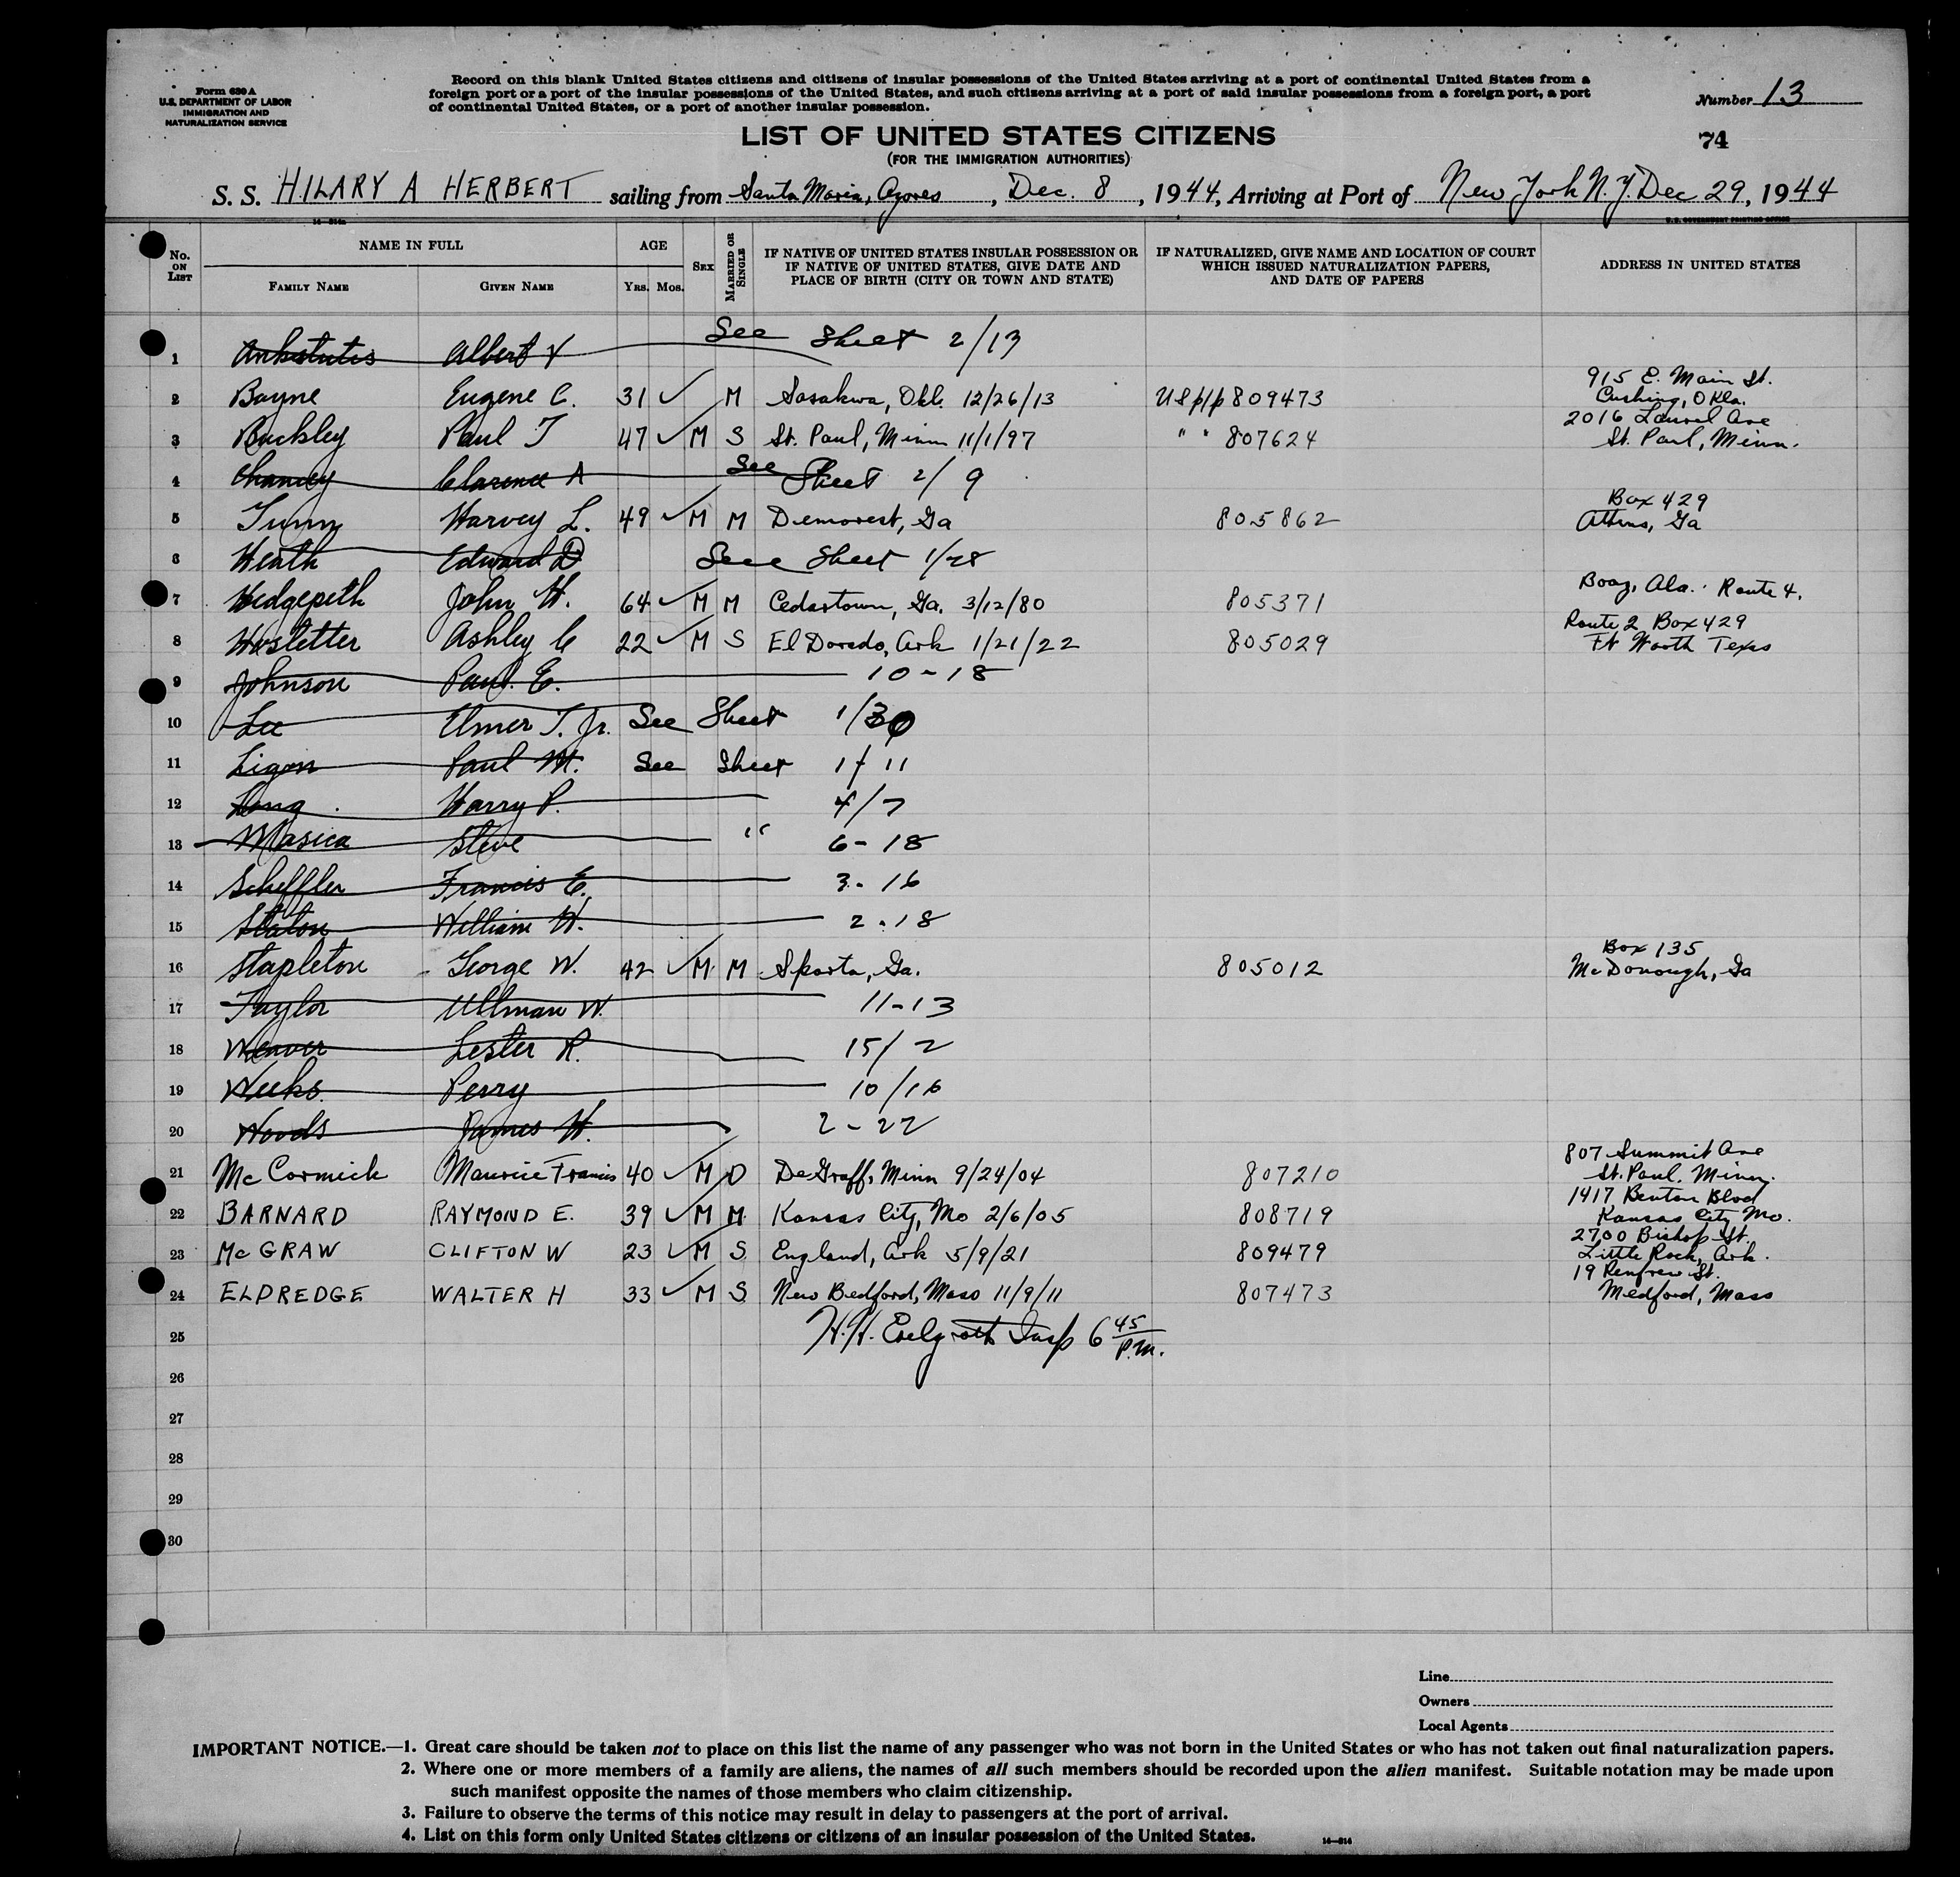 Form 630 A
U.S. DEPARTMENT OF LABOR
IMMIGRATION AND
NATURALIZATION SERVICE
Record on this blank United States citizens and citizens of insular possessions of the United States arriving at a port of continental United States from a
foreign port or a port of the insular possessions of the United States, and such citizens arriving at a port of said insular possessions from a foreign port, a port
of continental United States, or a port of another insular possession.
Number 13
LIST OF UNITED STATES CITIZENS
74
(FOR THE IMMIGRATION AUTHORITIES)
S. S. HILARY A HERBERT sailing from Santa Maria, Azores, Dec. 8, 1944, Arriving at Port of New York N.Y. Dec 29, 1944
U.S. GOVERNMENT PRINTING OFFICE
No. ON LIST
NAME IN FULL
FAMILY NAME
GIVEN NAME
AGE
YRS. MOS.
SEX
MARRIED OR SINGLE
IF NATIVE OF UNITED STATES INSULAR POSSESSION OR
IF NATIVE OF UNITED STATES, GIVE DATE AND
PLACE OF BIRTH (CITY OR TOWN AND STATE)
IF NATURALIZED, GIVE NAME AND LOCATION OF COURT
WHICH ISSUED NATURALIZATION PAPERS,
AND DATE OF PAPERS
ADDRESS IN UNITED STATES
1 Albert See Sheet 2/13
2 Bayne Eugene C. 31 ✓ M Sasakwa, Okl. 12/26/13 USpp 809473 915 E. Main St. Cushing, Okla.
3 Buckley Paul T 47 ✓ M S St. Paul, Minn 11/1/97 " " 807624 2016 Laurel Ave St. Paul, Minn.
4 Chancey Clarence A See Sheet 2/9
5 Harvey L. 49 ✓ M M Demorest, Ga 805862 Box 429 Athens, Ga
6 Heath Edward D See Sheet 1/28
7 Hedgepeth John H. 64 ✓ M M Cedartown, Ga. 3/12/80 805371 Boaz, Ala. Route 4.
8 Hostetter Ashley C 22 ✓ M S El Dorado, Ark 1/21/22 805029 Route 2 Box 429 Ft Worth Texas
9 Johnson Paul E. 10-18
10 Lee Elmer T. Jr. See Sheet 1/30
11 Ligon Paul M. See Sheet 1/11
12 Long Harry P. 4/7
13 Masica Steve " 6-18
14 Scheffler Francis E. 3-16
15 Staton William W. 2-18
16 Stapleton George W. 42 ✓ M M Sparta, Ga. 805012 Box 135 McDonough, Ga
17 Taylor Ullman W. 11-13
18 Weaver Lester R. 15/2
19 Weeks Perry 10/16
20 Woods James H. 2-22
21 McCormick Maurice Francis 40 ✓ M D DeGraff, Minn 9/24/04 807210 807 Summit Ave St. Paul, Minn.
22 BARNARD RAYMOND E. 39 ✓ M M Kansas City, Mo 2/6/05 808719 1417 Benton Blvd Kansas City Mo.
23 McGRAW CLIFTON W 23 ✓ M S England, Ark 5/9/21 809479 2700 Bishop St. Little Rock, Ark.
24 ELDREDGE WALTER H 33 ✓ M S New Bedford, Mass 11/9/11 807473 19 Renfrew St. Medford, Mass
25 H.H. Insp 6 45 P.M.
26
27
28
29
30
Line
Owners
Local Agents
IMPORTANT NOTICE.—1. Great care should be taken not to place on this list the name of any passenger who was not born in the United States or who has not taken out final naturalization papers.
2. Where one or more members of a family are aliens, the names of all such members should be recorded upon the alien manifest. Suitable notation may be made upon
such manifest opposite the names of those members who claim citizenship.
3. Failure to observe the terms of this notice may result in delay to passengers at the port of arrival.
4. List on this form only United States citizens or citizens of an insular possession of the United States.